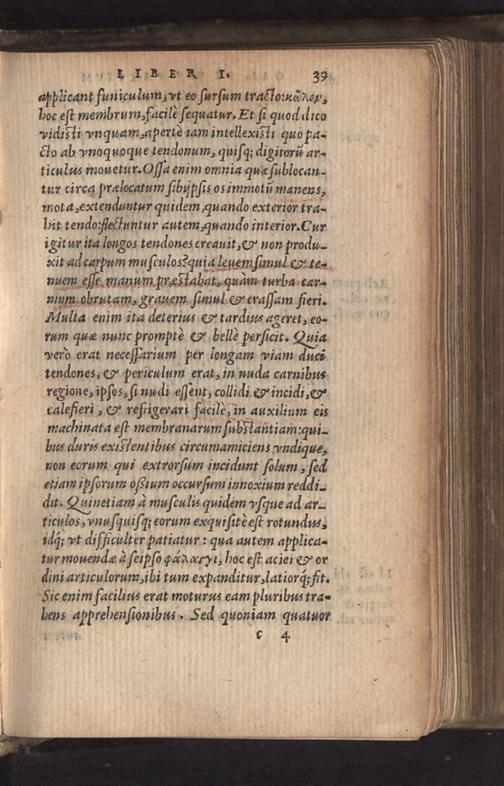 LIBER I. 39
applicant funiculum, vt eo sursum tracto: κῶλον,
hoc est membrum, facilè sequatur. Et si quod dico
vidisti vnquam, apertè iam intellexisti quo pa-
cto ab vnoquoque tendonum, quisq; digitorũ ar-
ticulus mouetur. Ossa enim omnia quæ sublocan-
tur circa prælocatum sibijpsis os immotũ manens,
mota, extenduntur quidem, quando exterior tra-
hit tendo: flectuntur autem, quando interior. Cur
igitur ita longos tendones creauit, & non produ-
xit ad carpum musculos? quia leuem simul & te-
nuem esse manum præstabat, quàm turba car-
nium obrutam, grauem simul & crassam fieri.
Multa enim ita deterius & tardius ageret, eo-
rum quæ nunc promptè & bellè perficit. Quia
verò erat necessarium per longam viam duci
tendones, & periculum erat, in nuda carnibus
regione, ipsos, si nudi essent, collidi & incidi, &
calefieri, & refrigerari facilè, in auxilium eis
machinata est membranarum substantiam: qui-
bus duris existentibus circumamiciens vndique,
non eorum qui extrorsum incidunt solum, sed
etiam ipsorum ossium occursum innoxium reddi-
dit. Quinetiam à musculis quidem vsque ad ar-
ticulos, vnusquisq; eorum exquisitè est rotundus,
idq; vt difficulter patiatur: qua autem applica-
tur mouendæ à seipso φάλαγγι, hoc est aciei & or
dini articulorum, ibi tum expanditur, latiorq; fit.
Sic enim facilius erat moturus eam pluribus tra-
hens apprehensionibus. Sed quoniam quatuor
c 4